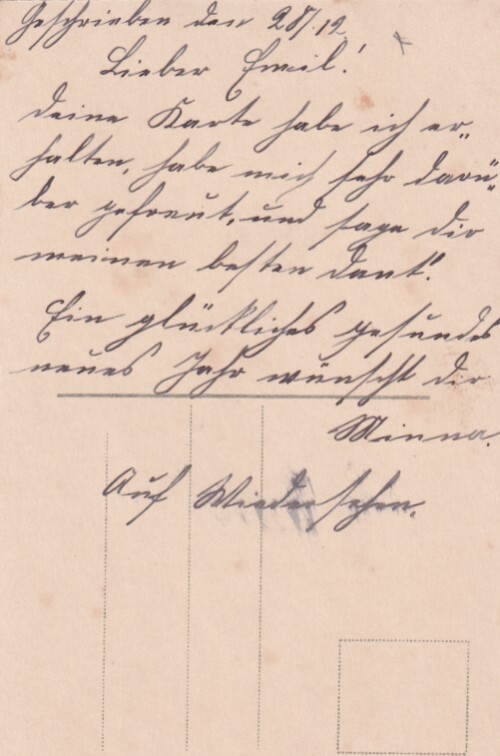 Geschrieben den 28/12.
Lieber Emil!
deine Karte habe ich er„
halten, habe mich sehr darü„
ber gefreut, und sage dir
meinen besten Dank".
Ein glückliches gesundes
neues Jahr wünscht dir
Minna.
Auf Wiedersehen.